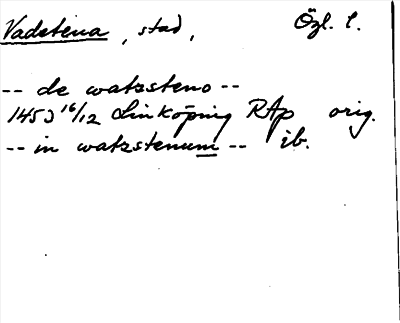 Vadstena, stad, Özl. l.
-- de watzsteno --
1453 16/12 Linköping RAp orig.
-- in watzstenum -- ib.